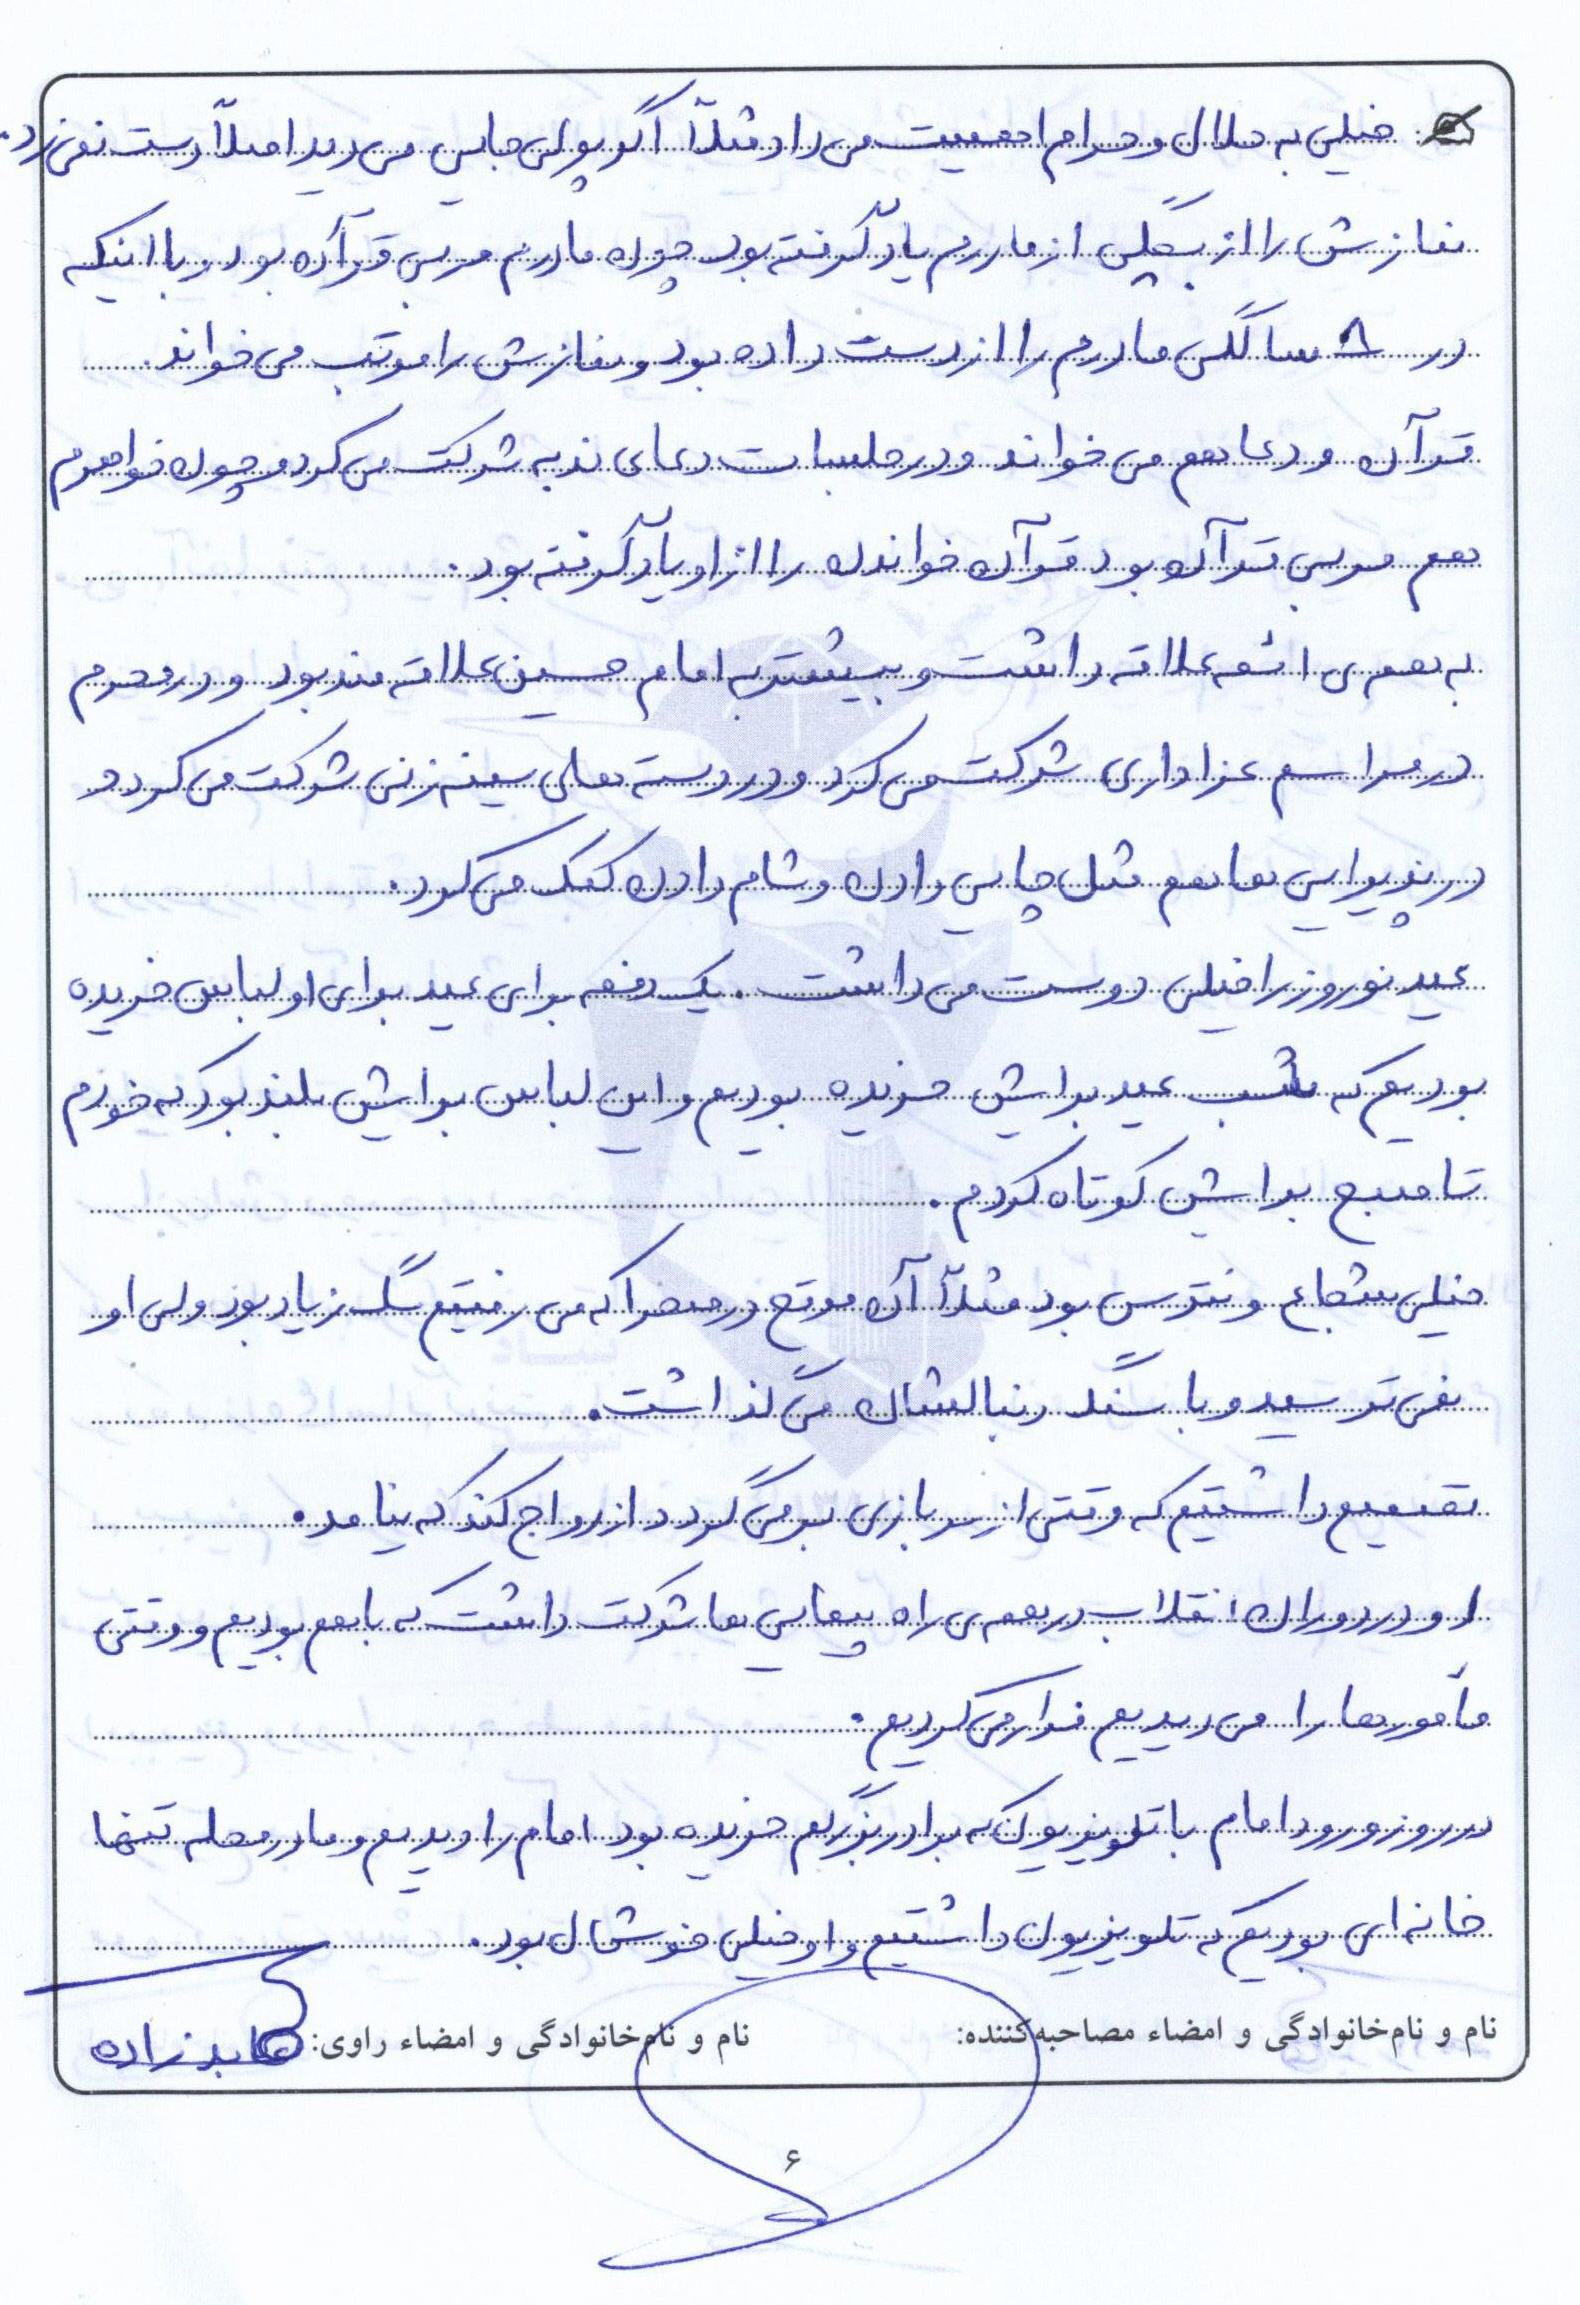 خیلی به حلال و حرام اهمیت می داد مثلاً اگر پولی جایی می دید اصلاً دست نمی زد.
نمازش را از بچگی از مادرم یاد گرفته بود چون مادرم مربی قرآن بود و با اینکه
در ۸ سالگی مادرم را از دست داده بود و نمازش را مرتب می خواند.
قرآن و دعا هم می خواند و در جلسات دعای ندبه شرکت می کرد و چون خواهرم
هم مربی قرآن بود قرآن خواندن را از او یاد گرفته بود.
به همه ی ائمه علاقه داشت و بیشتر به امام حسین علاقه مند بود و در محرم
در مراسم عزاداری شرکت می کرد و در دسته های سینه زنی شرکت می کرد و
در پذیرایی ها هم مثل چایی دادن و شام دادن کمک می کرد.
عید نوروز را خیلی دوست می داشت. یک دفعه برای عید برای او لباس خریده
بودیم که شب عید برایش خریده بودیم و این لباس برایش بلند بود که خودم
تا صبح برایش کوتاه کردم.
خیلی شجاع و نترس بود مثلاً آن موقع در صحرا که می رفتیم سگ زیاد بود ولی او
نمی ترسید و با سنگ دنبالشان می گذاشت.
تصمیم داشتیم که وقتی از سربازی برمی گردد ازدواج کند که نیامد.
او در دوران انقلاب در همه ی راه پیمایی ها شرکت داشت که با هم بودیم و وقتی
مأمورها را می دیدیم فرار می کردیم.
در روز ورود امام با تلویزیون که برادر بزرگم خریده بود امام را دیدیم و ما در محله تنها
خانه ای بودیم که تلویزیون داشتیم و او خیلی خوشحال بود.
نام و نام‌خانوادگی و امضاء مصاحبه‌کننده:
نام و نام‌خانوادگی و امضاء راوی: عابدزاده
۶